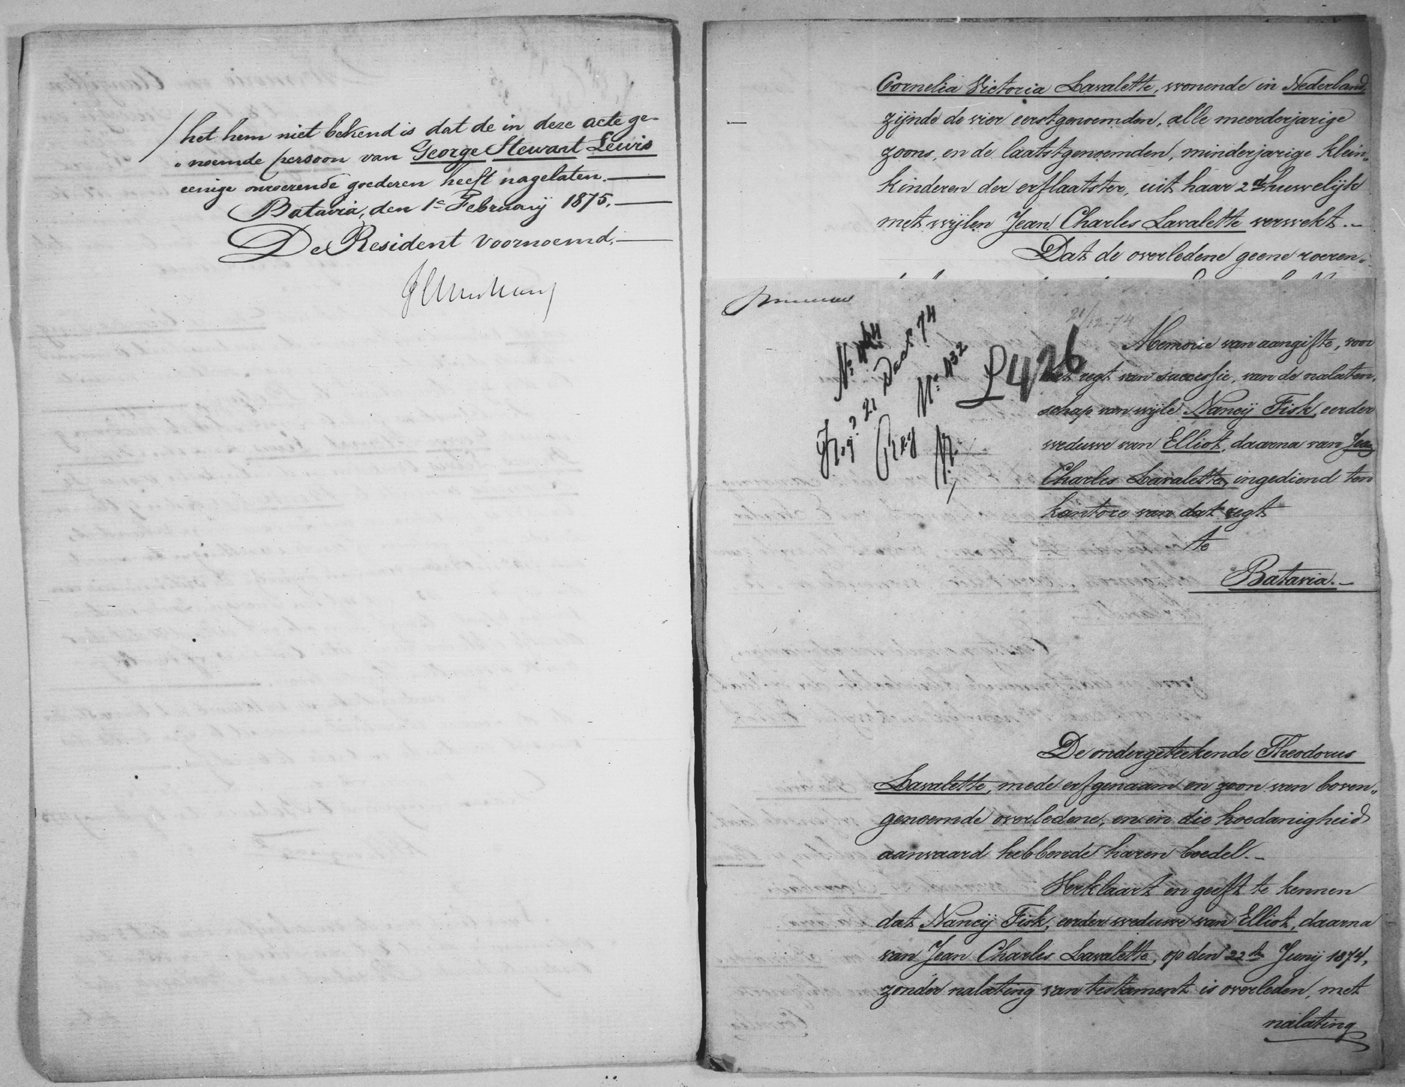 het hem niet bekend is dat de in deze acte ge-
„noemde persoon van George Stewart Lewis
eenige onroerende goederen heeft nagelaten.
Batavia, den 1e February 1875.
De Resident voornoemd,
Cornelia Victoria Lavalette, wonende in Nederland,
zijnde de vier eerstgenoemden, alle meerderjarige
zoons, en de laatstgenoemden, minderjarige klein„
kinderen der erflaatster, uit haar 2de huwelijk
met wijlen Jean Charles Lavalette verwekt.
Dat de overledene geene roeren„
21/12-74
No 464
Ing. 21 Decr 74
Reg No 432
£426
Memorie van aangifte, voor
het regt van successie, van de nalaten„
schap van wijle Nancij Fisk, eerder
weduwe van Elliot, daarna van Jean
Charles Lavalette, ingediend ten
kantore van dat regt
te
Batavia.
De ondergeteekende Theodorus
Lavalette, mede erfgenaam en zoon van boven„
genoemde overledene, en in die hoedanigheid
aanvaard hebbende haren boedel.
Verklaart en geeft te kennen
dat Nancij Fisk, eerder weduwe van Elliot, daarna
van Jean Charles Lavalette, op den 22de Junij 1874,
zonder nalating van testament is overleden, met
nalating